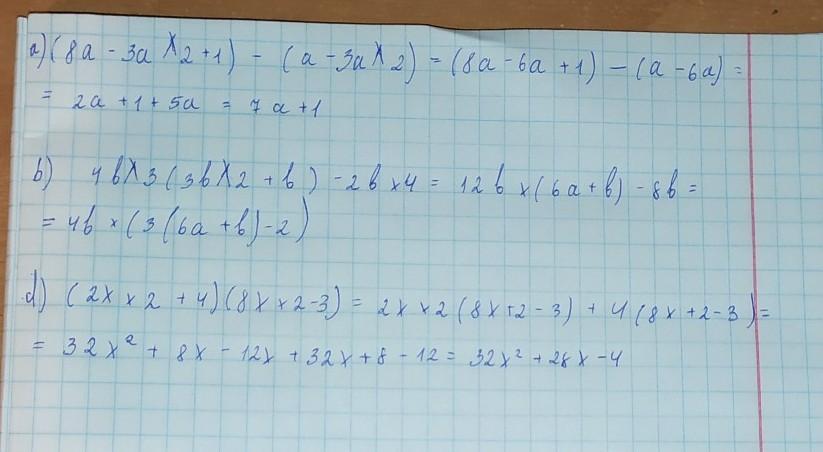 a) (8a - 3a × 2 + 1) - (a - 3a × 2) = (8a - 6a + 1) - (a - 6a) =
= 2a + 1 + 5a = 7a + 1
b) 4b × 3 (3b × 2 + b) - 2b × 4 = 12b × (6a + b) - 8b =
= 4b × (3(6a + b) - 2)
d) (2x × 2 + 4)(8x × 2 - 3) = 2x × 2 (8x + 2 - 3) + 4 (8x + 2 - 3) =
= 32x² + 8x - 12x + 32x + 8 - 12 = 32x² + 28x - 4